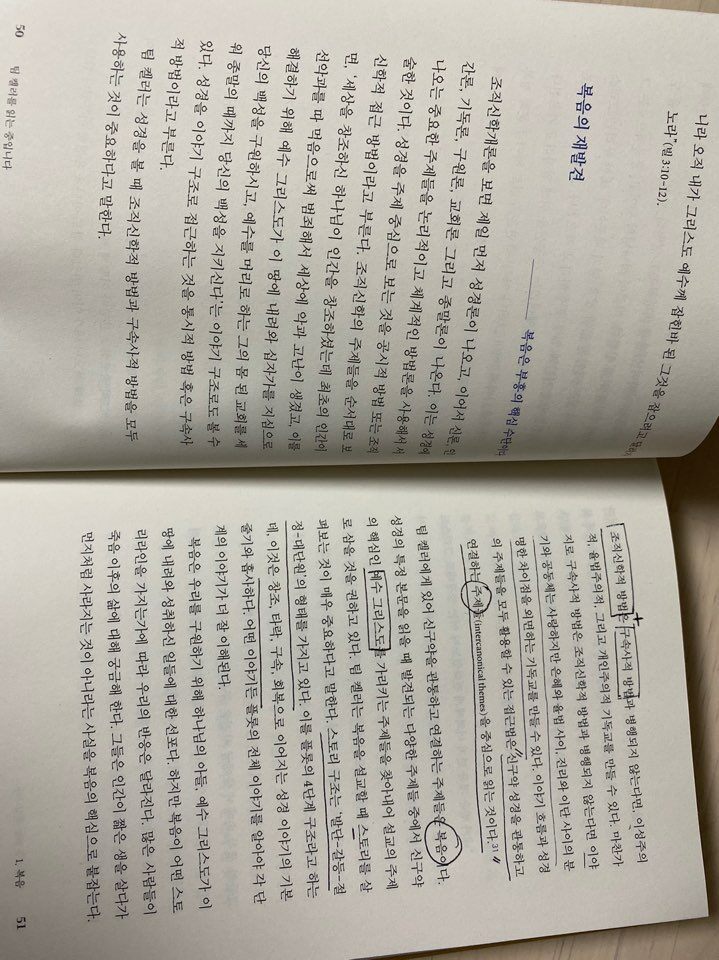 니라 오직 내가 그리스도 예수께 잡힌바 된 그것을 잡으려고 달려가
노라”(빌 3:10-12).
복음의 재발견
복음은 부흥의 핵심 수단이다
조직신학개론을 보면 제일 먼저 성경론이 나오고, 이어서 신론, 인
간론, 기독론, 구원론, 교회론 그리고 종말론이 나온다. 이는 성경에
나오는 중요한 주제들을 논리적이고 체계적인 방법론을 사용해서 서
술한 것이다. 성경을 주제 중심으로 보는 것을 공시적 방법 또는 조직
신학적 접근 방법이라고 부른다. 조직신학의 주제들을 순서대로 보
면, ‘세상을 창조하신 하나님이 인간을 창조하셨는데 최초의 인간이
선악과를 따 먹음으로써 범죄해서 세상에 악과 고난이 생겼고, 이를
해결하기 위해 예수 그리스도가 이 땅에 내려와 십자가를 지심으로
당신의 백성을 구원하시고, 예수를 머리로 하는 그의 몸 된 교회를 세
워 종말의 때까지 당신의 백성을 지키신다’는 이야기 구조로도 볼 수
있다. 성경을 이야기 구조로 접근하는 것을 통시적 방법 혹은 구속사
적 방법이라고 부른다.
팀 켈러는 성경을 볼 때 조직신학적 방법과 구속사적 방법을 모두
사용하는 것이 중요하다고 말한다.
50 팀 켈러를 읽는 중입니다
조직신학적 방법은 구속사적 방법과 병행되지 않는다면, 이성주의
적, 율법주의적, 그리고 개인주의적 기독교를 만들 수 있다. 마찬가
지로 구속사적 방법은 조직신학적 방법과 병행되지 않는다면 이야
기와 공동체는 사랑하지만 은혜와 율법 사이, 진리와 이단 사이의 분
명한 차이점을 외면하는 기독교를 만들 수 있다. 이야기 흐름과 성경
의 주제들을 모두 활용할 수 있는 접근법은 신구약 성경을 관통하고
연결하는 주제들(intercanonical themes)을 중심으로 읽는 것이다.31
팀 켈러에게 있어 신구약을 관통하고 연결하는 주제들은 복음이다.
성경의 특정 본문을 읽을 때 발견되는 다양한 주제들 중에서 신구약
의 핵심인 예수 그리스도를 가리키는 주제들을 찾아내어 설교의 주제
로 삼을 것을 권하고 있다. 팀 켈러는 복음을 설교할 때 스토리를 살
펴보는 것이 매우 중요하다고 말한다. 스토리 구조는 ‘발단-갈등-절
정-대단원’의 형태를 가지고 있다. 이를 플롯의 4단계 구조라고 하는
데, 이것은 창조, 타락, 구속, 회복으로 이어지는 성경 이야기의 기본
줄기와 흡사하다. 어떤 이야기든 플롯의 전체 이야기를 알아야 각 단
계의 이야기가 더 잘 이해된다.
복음은 우리를 구원하기 위해 하나님의 아들, 예수 그리스도가 이
땅에 내려와 성취하신 일들에 대한 선포다. 하지만 복음이 어떤 스토
리라인을 가지는가에 따라 우리의 반응은 달라진다. 많은 사람들이
죽음 이후의 삶에 대해 궁금해 한다. 그들은 인간이 짧은 생을 살다가
먼지처럼 사라지는 것이 아니라는 사실을 복음의 핵심으로 붙잡는다.
1. 복음 51